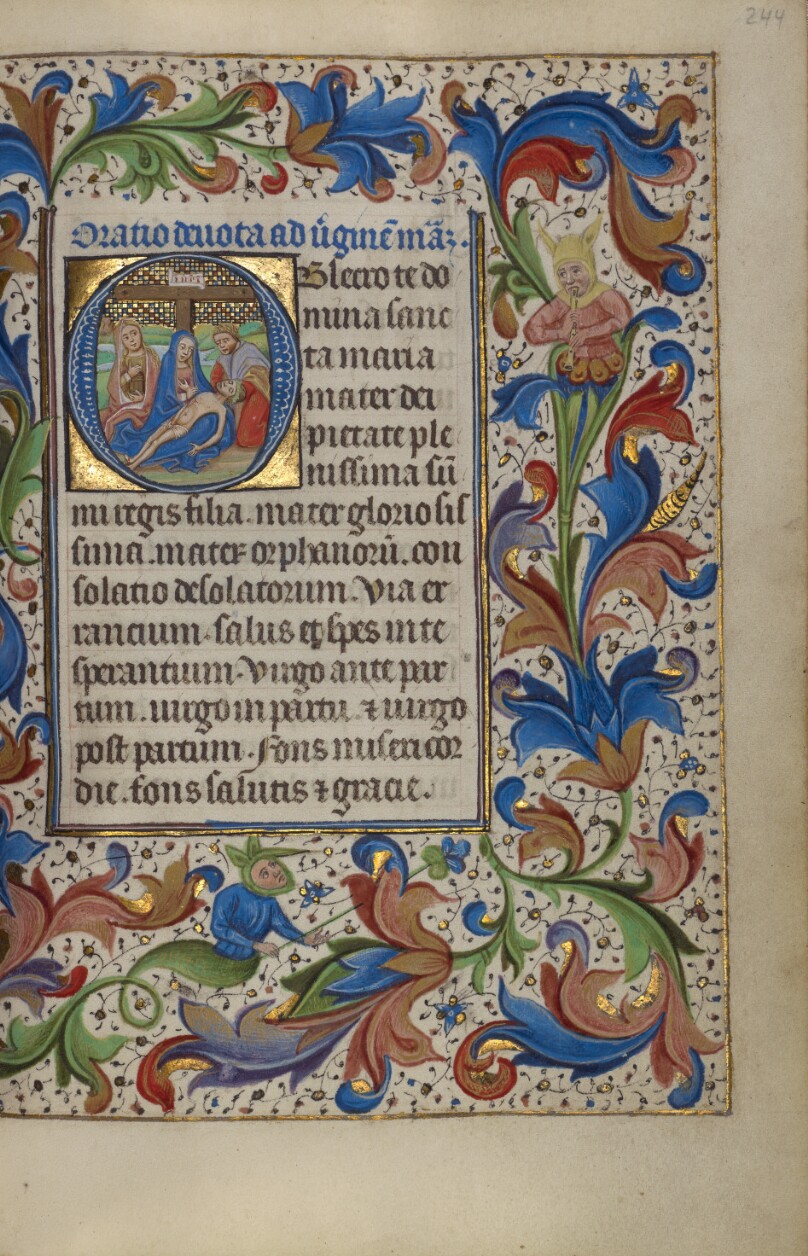 244
Oratio deuota ad v̄ginē mā₃.
INRI
Obsecro te do
mina sanc
ta maria
mater dei
pietate ple
nissima sū
mi regis filia. mater glorio sis
sima. mater orphanorū. con
solatio desolatorum. Via er
rancium. salus et spes in te
sperantium. Virgo ante par
tum. uirgo in partu. ⁊ uirgo
post partum. Fons misericor
die. fons salutis ⁊ gracie.